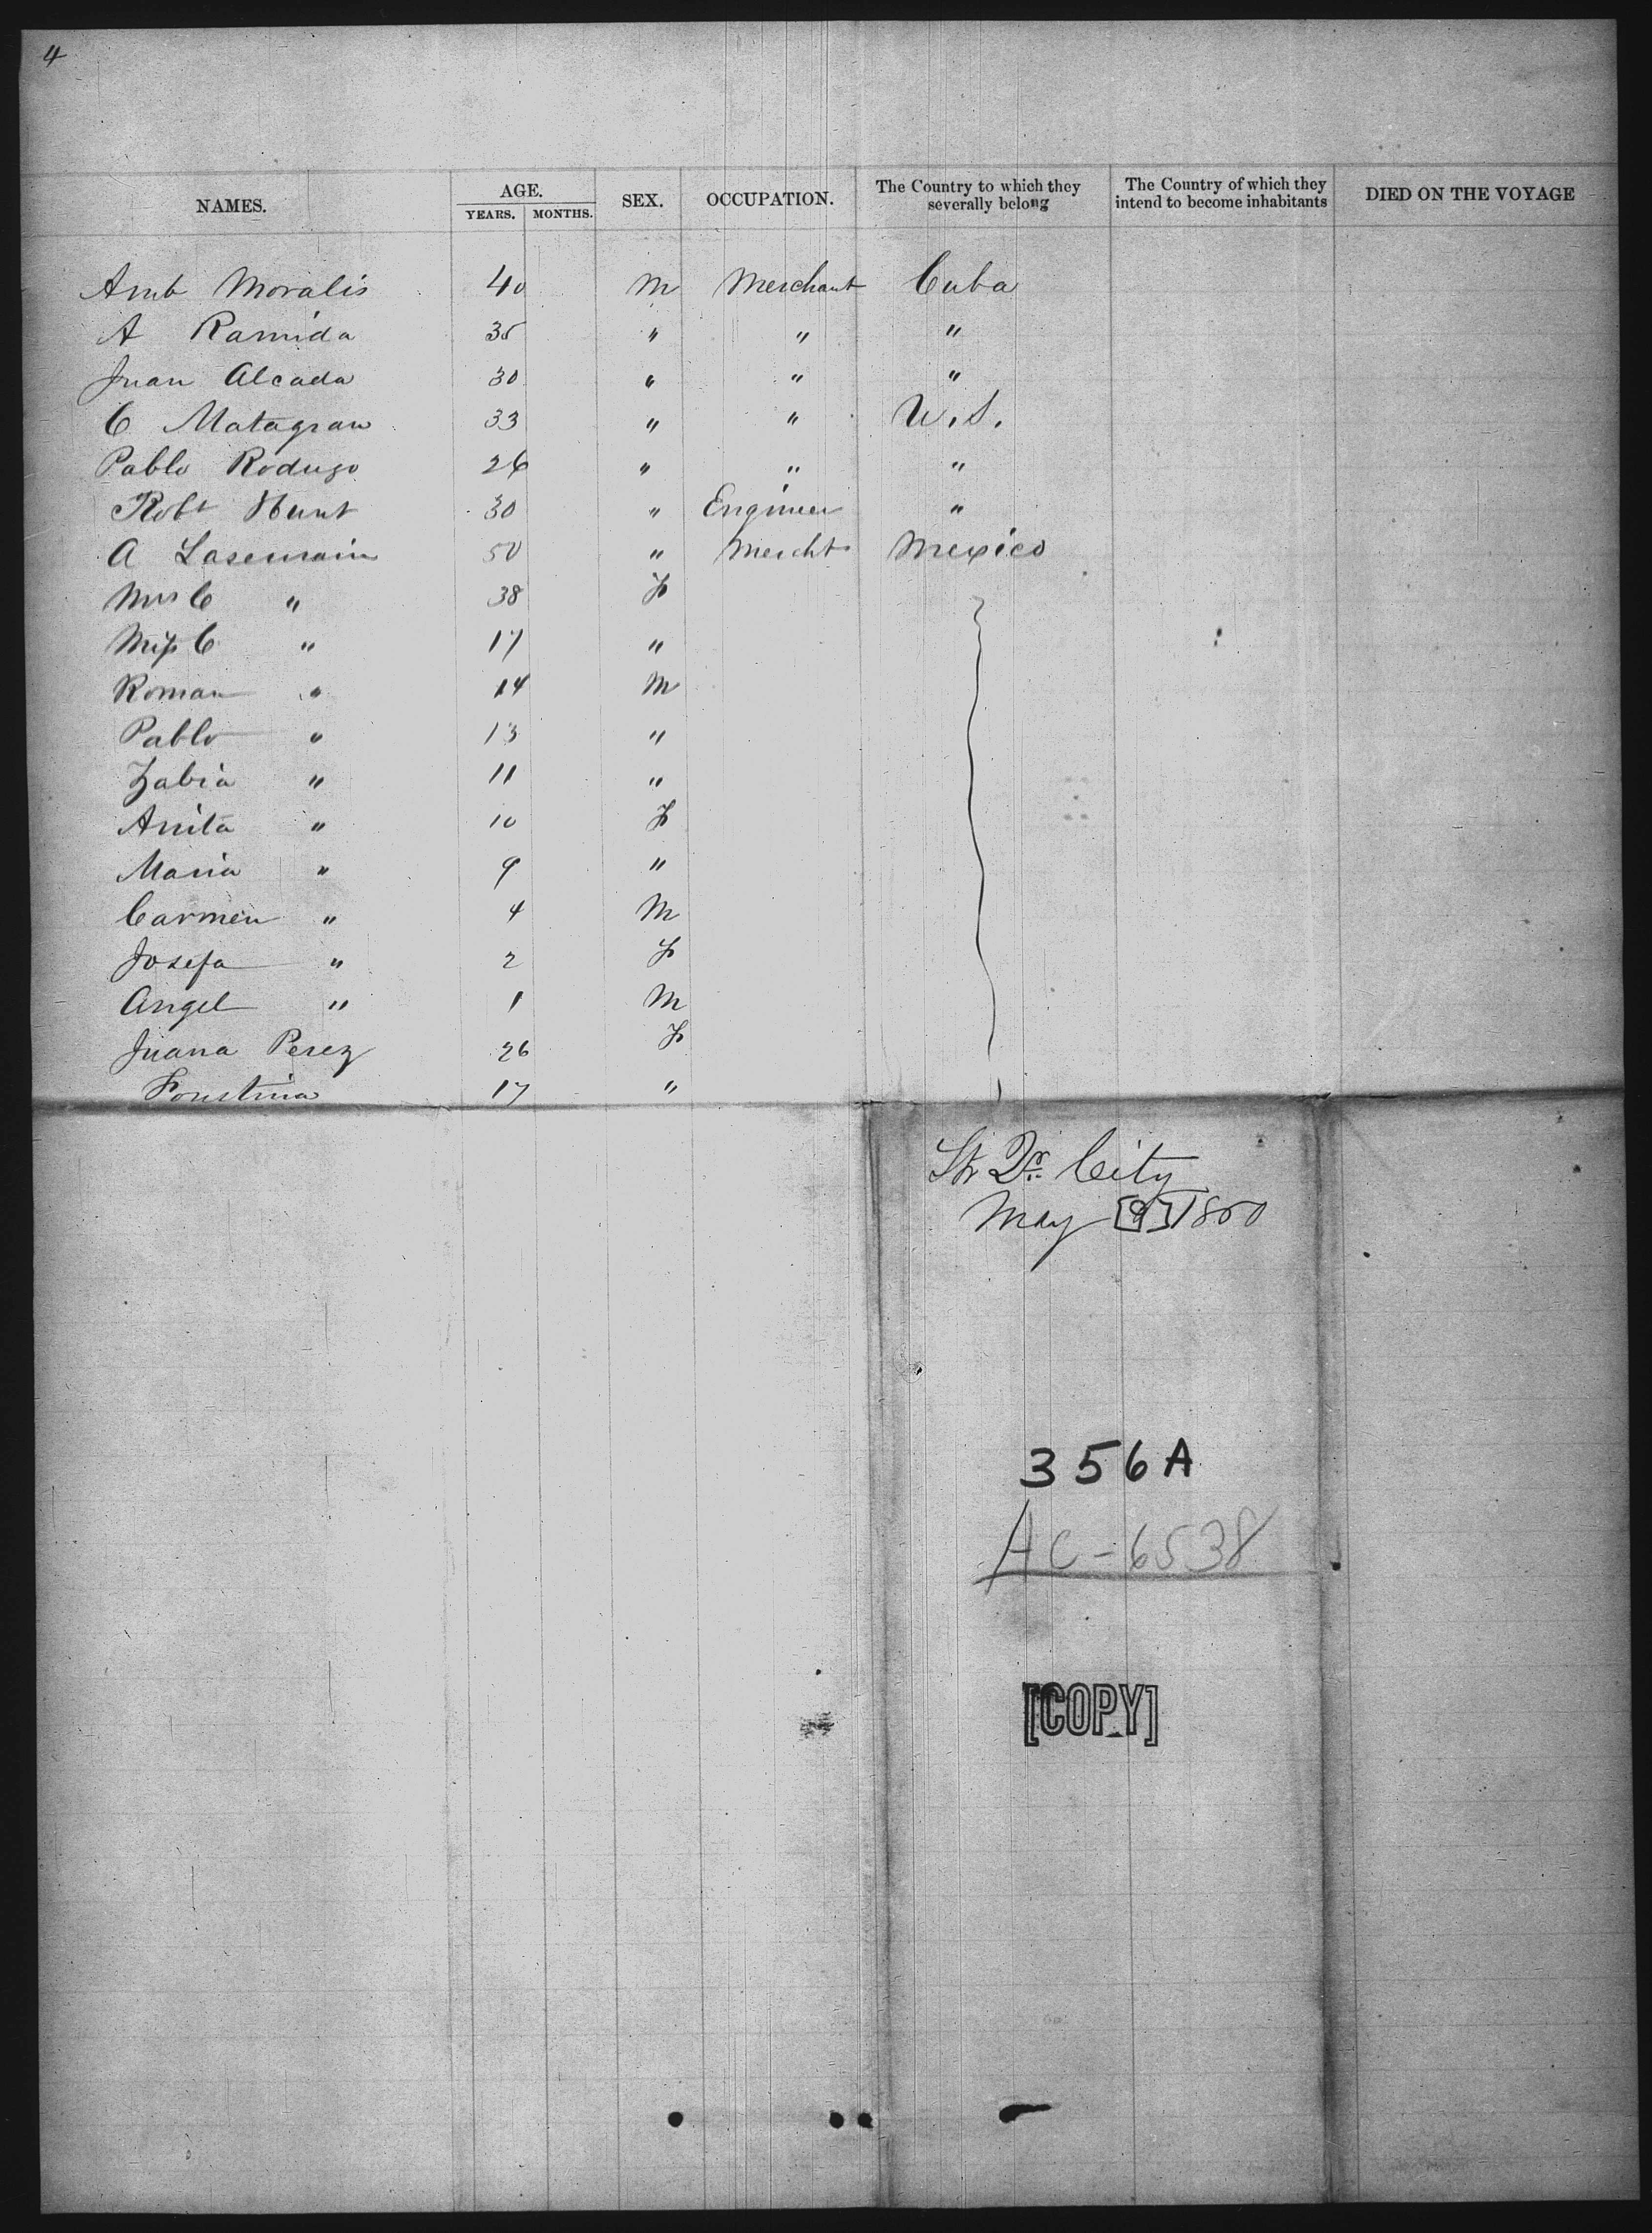 4
NAMES. AGE. YEARS. MONTHS. SEX. OCCUPATION. The Country to which they severally belong The Country of which they intend to become inhabitants DIED ON THE VOYAGE
Amb Moralis 40 M Merchant Cuba
A Ramida 35 " " "
Juan Alcada 30 " " "
C Matagran 33 " " U.S.
Pablo Rodugo 26 " " "
Robt Hunt 30 " Engineer "
A 50 " Mercht Mexico
Mrs C " 38 F
Miss C " 17 "
Roman " 14 M
Pablo " 13 "
Zabia " 11 "
Anita " 10 F
Maria " 9 "
Carmen " 4 M
Josefa " 2 F
Angel " 1 M
Juana Perez 26 F
Foustina 17 "
City
May [9] 18
356A
AC-6538
[COPY]